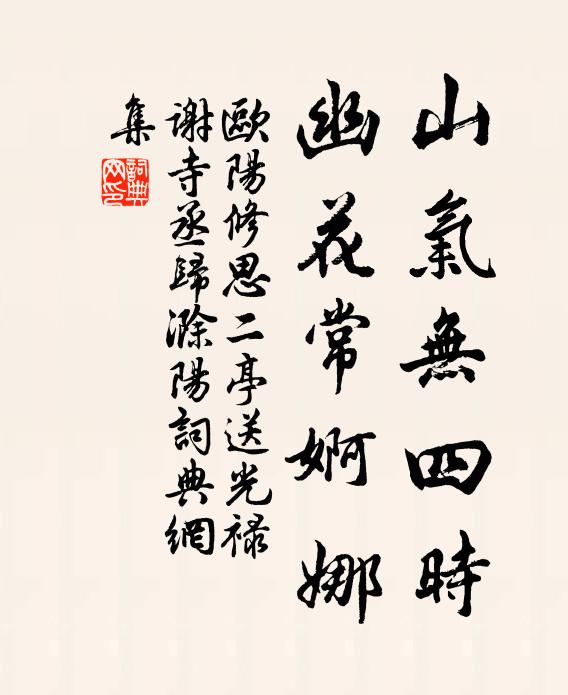 山氣無四時
幽花常婀娜
歐陽修思二亭送光祿
謝寺丞歸滁陽詞典網
集
詞典
网印